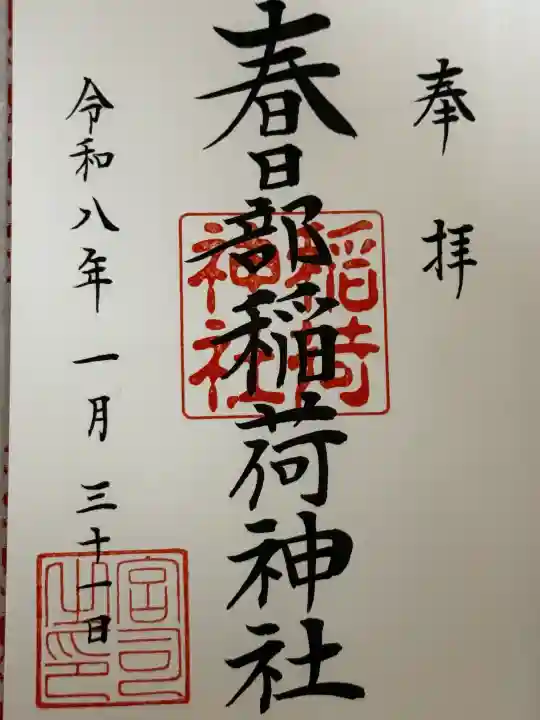 奉拝
春日部稲荷神社
稲荷神社
令和八年一月三十一日
宮司之印